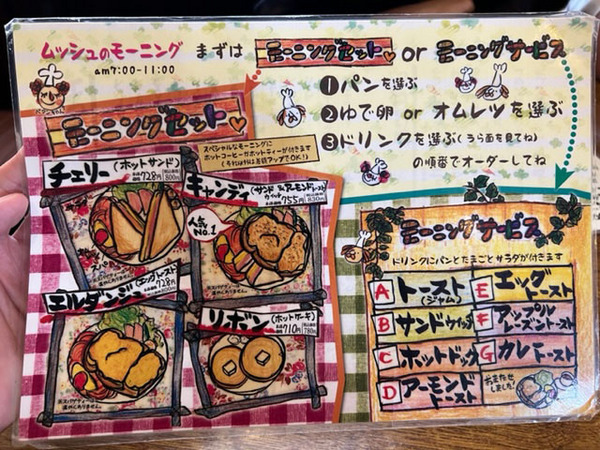 ムッシュのモーニング
am7:00-11:00
まずは モーニングセット or モーニングサービス
①パンを選ぶ
②ゆで卵 or オムレツを選ぶ
③ドリンクを選ぶ(うら面を見てね)
の順番でオーダーしてね
モーニングセット
スペシャルなモーニングに
ホットコーヒーかホットティーが付きます
チェリー(ホットサンド)
728円
800円
キャンディ(サンドウィッチ&アーモンドトースト)
755円
830円
人気
NO.1
エルダンジュ(エッグトースト)
728円
リボン(ホットケーキ)
710円
780円
モーニングサービス
ドリンクにパンとたまごとサラダが付きます
A トースト
(ジャム)
B サンドウィッチ
C ホットドッグ
D アーモンド
トースト
E エッグ
トースト
F アップル
レーズントースト
G カレートースト
お待たせ
しました!